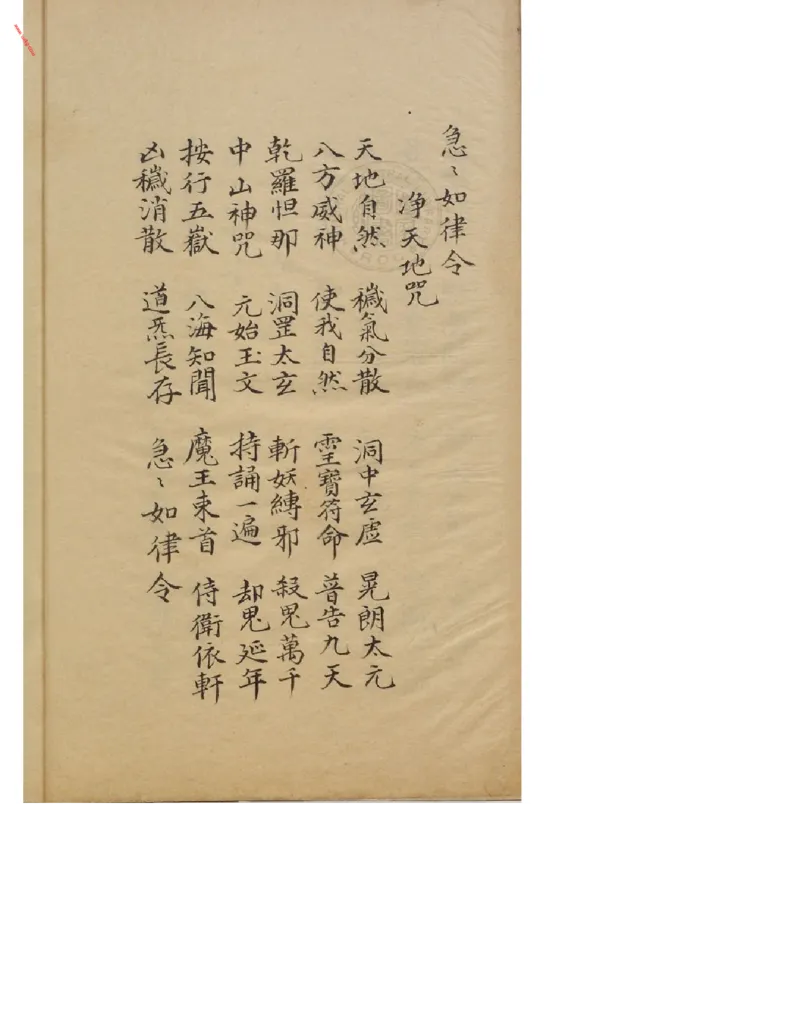 急〻如律令
净天地咒
天地自然 穢氣分散 洞中玄虛 晃朗太元
八方威神 使我自然 靈寶符命 普告九天
乾羅怛那 洞罡太玄 斬妖縛邪 殺鬼萬千
中山神咒 元始玉文 持誦一遍 却鬼延年
按行五嶽 八海知聞 魔王束首 侍衛依軒
凶穢消散 道炁長存 急〻如律令